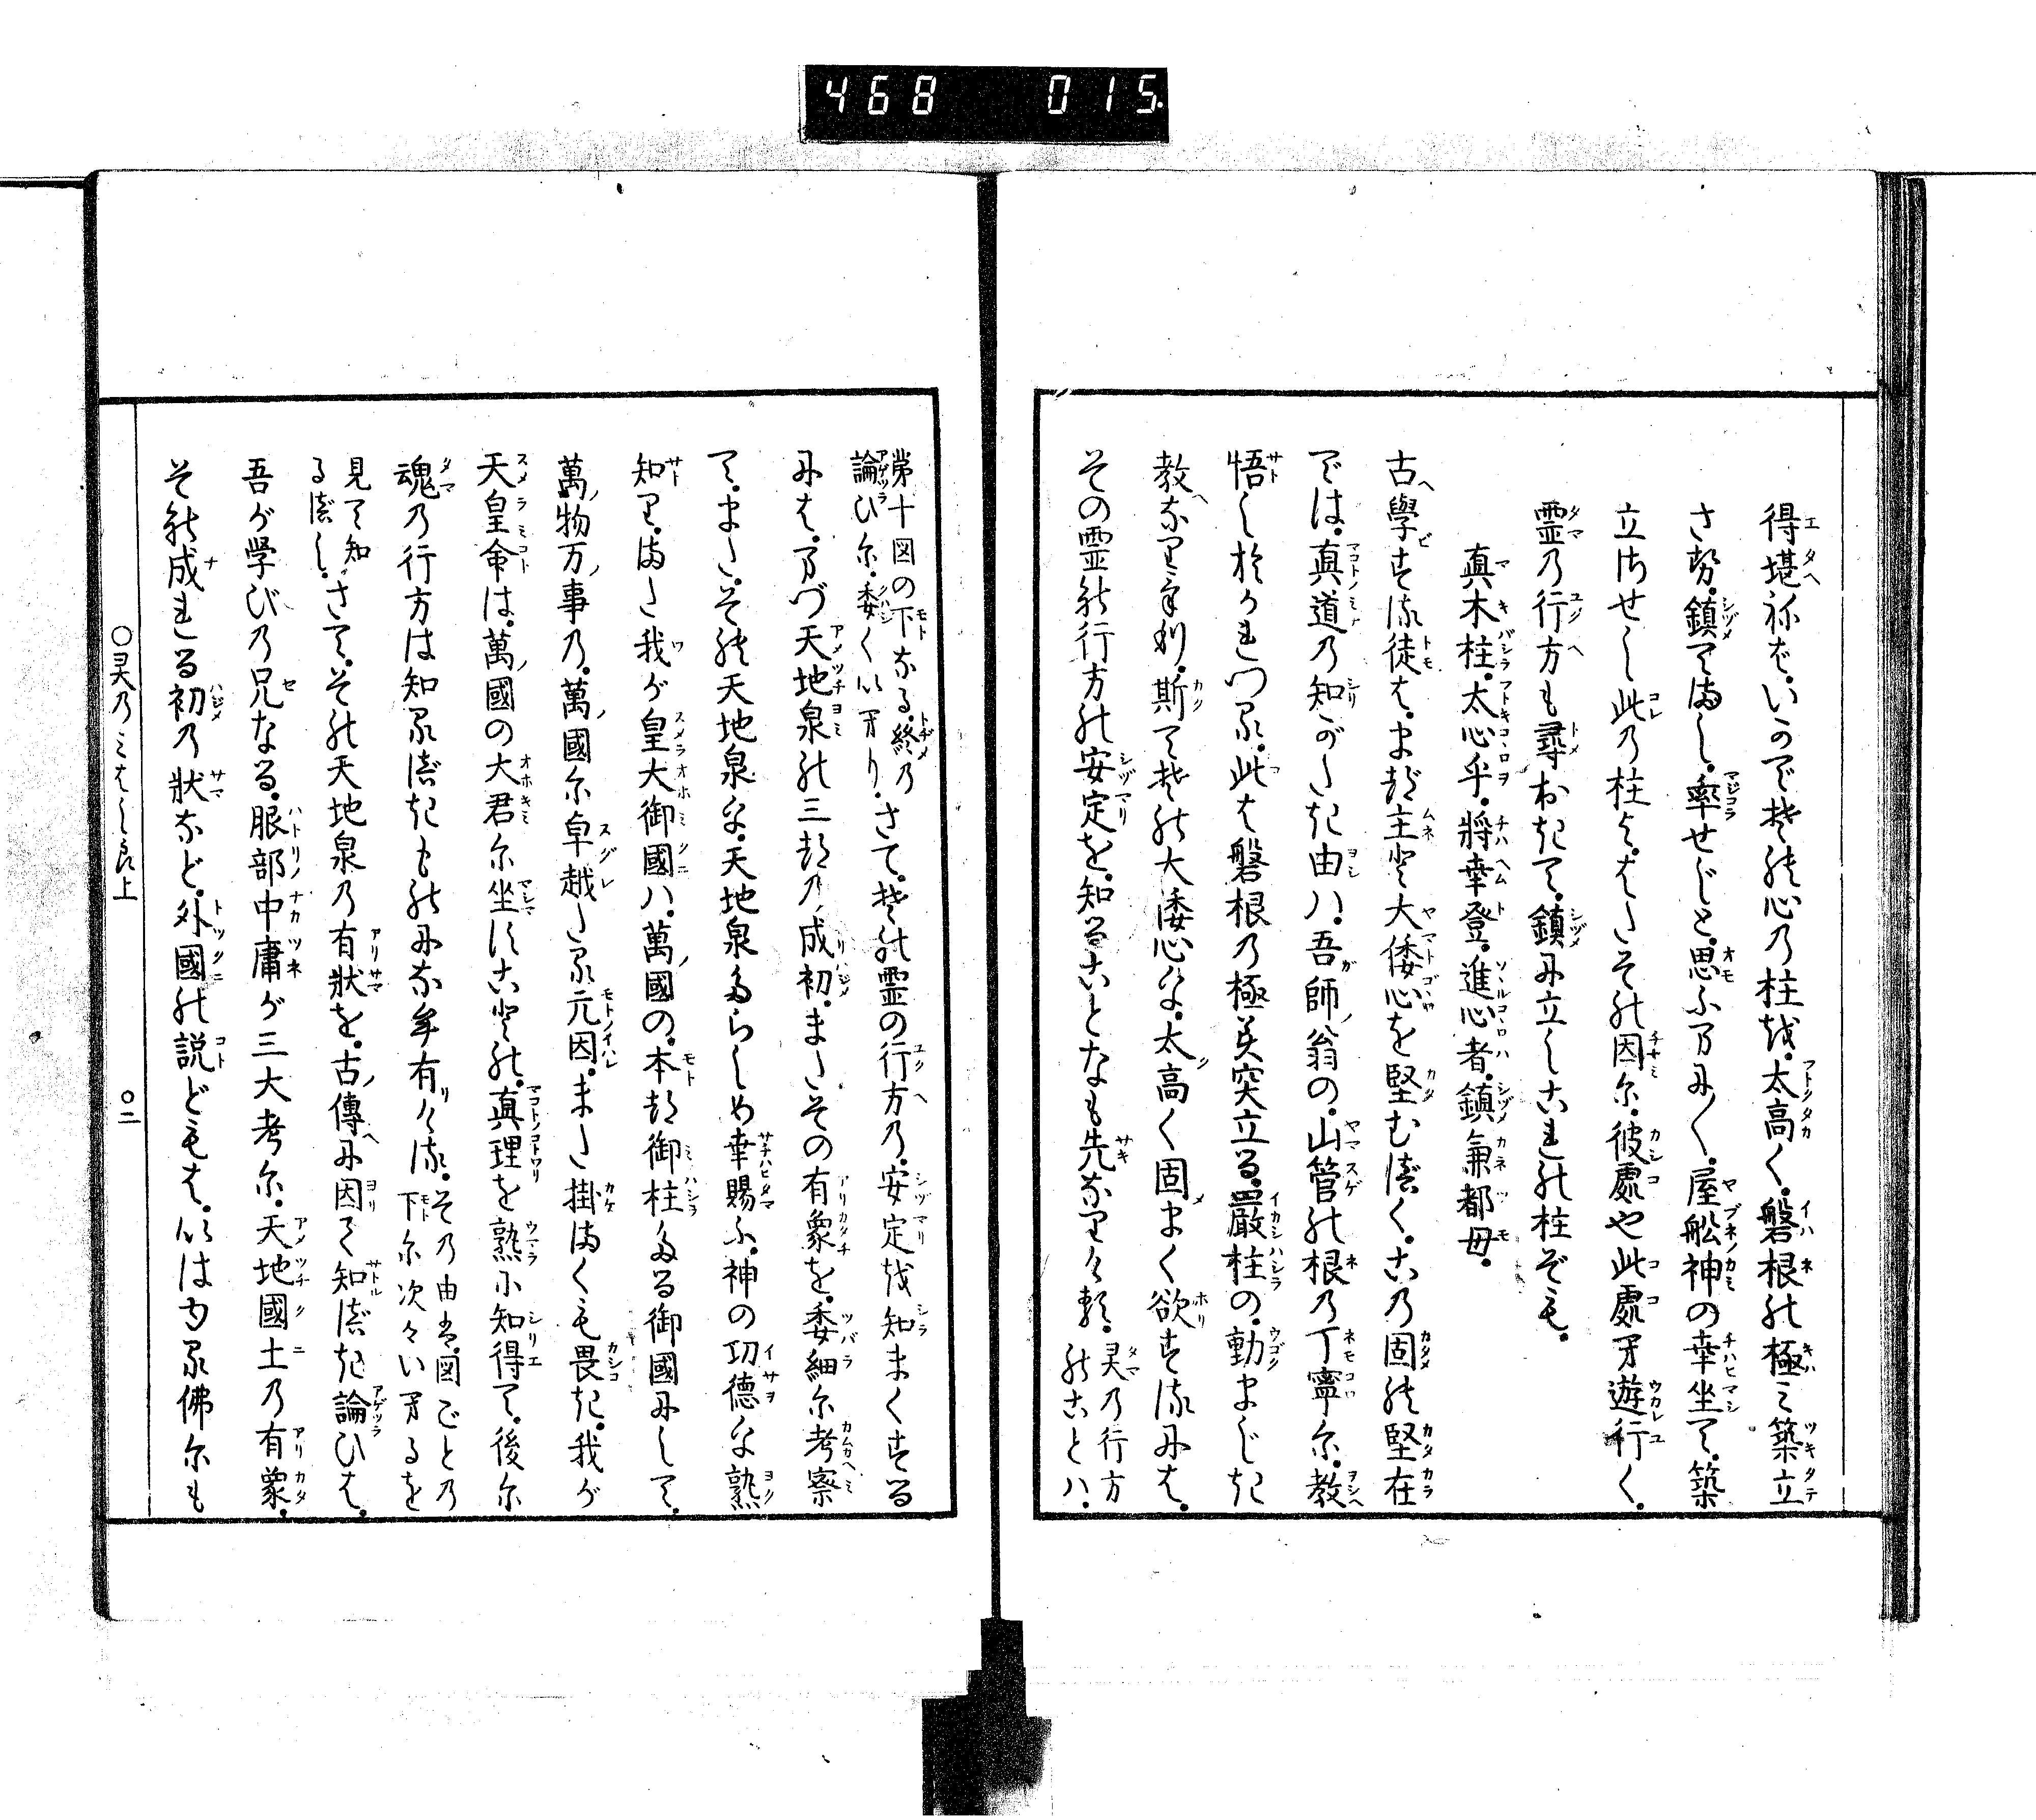 468 015
得堪祢ば。いかでその心の柱を。太高く。磐根の極み築立
させ。鎮てまし。率せじと。思ふまに〱。屋船神の幸坐て。築
立させし此の柱よ。はたその因に。彼處や此處す遊行く。
霊の行方も尋おきて。鎮に立しこれの柱ぞも。
真木柱。太心乎。將幸登。進心者。鎮兼都毋。
古學する徒は。まづ主と大倭心を堅むべく。この固の堅在
では。真道の知がたき由ハ。吾師翁の。山菅の根の丁寧に。教
悟しおかれつる。此は磐根の極み突立る。嚴柱の。動まじき
教なりけり。斯てその大倭心を。太高く固まく欲するには。
その霊の行方の安定を。知ることなも先なりける。
霊の行方のことハ。
第十図の下なる。終の
論ひに。委くいへり。
さて。その霊の行方の。安定を知まくする
には。まづ天地泉の三つの成初。またその有象を。委細に考察
て。また。その天地泉を。天地泉たらしめ幸賜ふ。神の功德を熟
知り。また我が皇大御國ハ。萬國の。本つ御柱たる御國にして。
萬物万事の。萬國に卓越たる元因。また掛まくも畏き。我が
天皇命は。萬國の大君に坐すことの。真理を熟に知得て。後に
魂の行方は知るべきものになむ有ける。
その由は。図ごとの
下に次々いへるを
見て知
るべし。
さて。その天地泉の有狀を。古傳に因て知べき論ひは。
吾が学びの兄なる。服部中庸が三大考に。天地國土の有象。
その成れる初の狀など。外國の説どもは。いはゆる佛にも
○灵のみはしら上 ○二